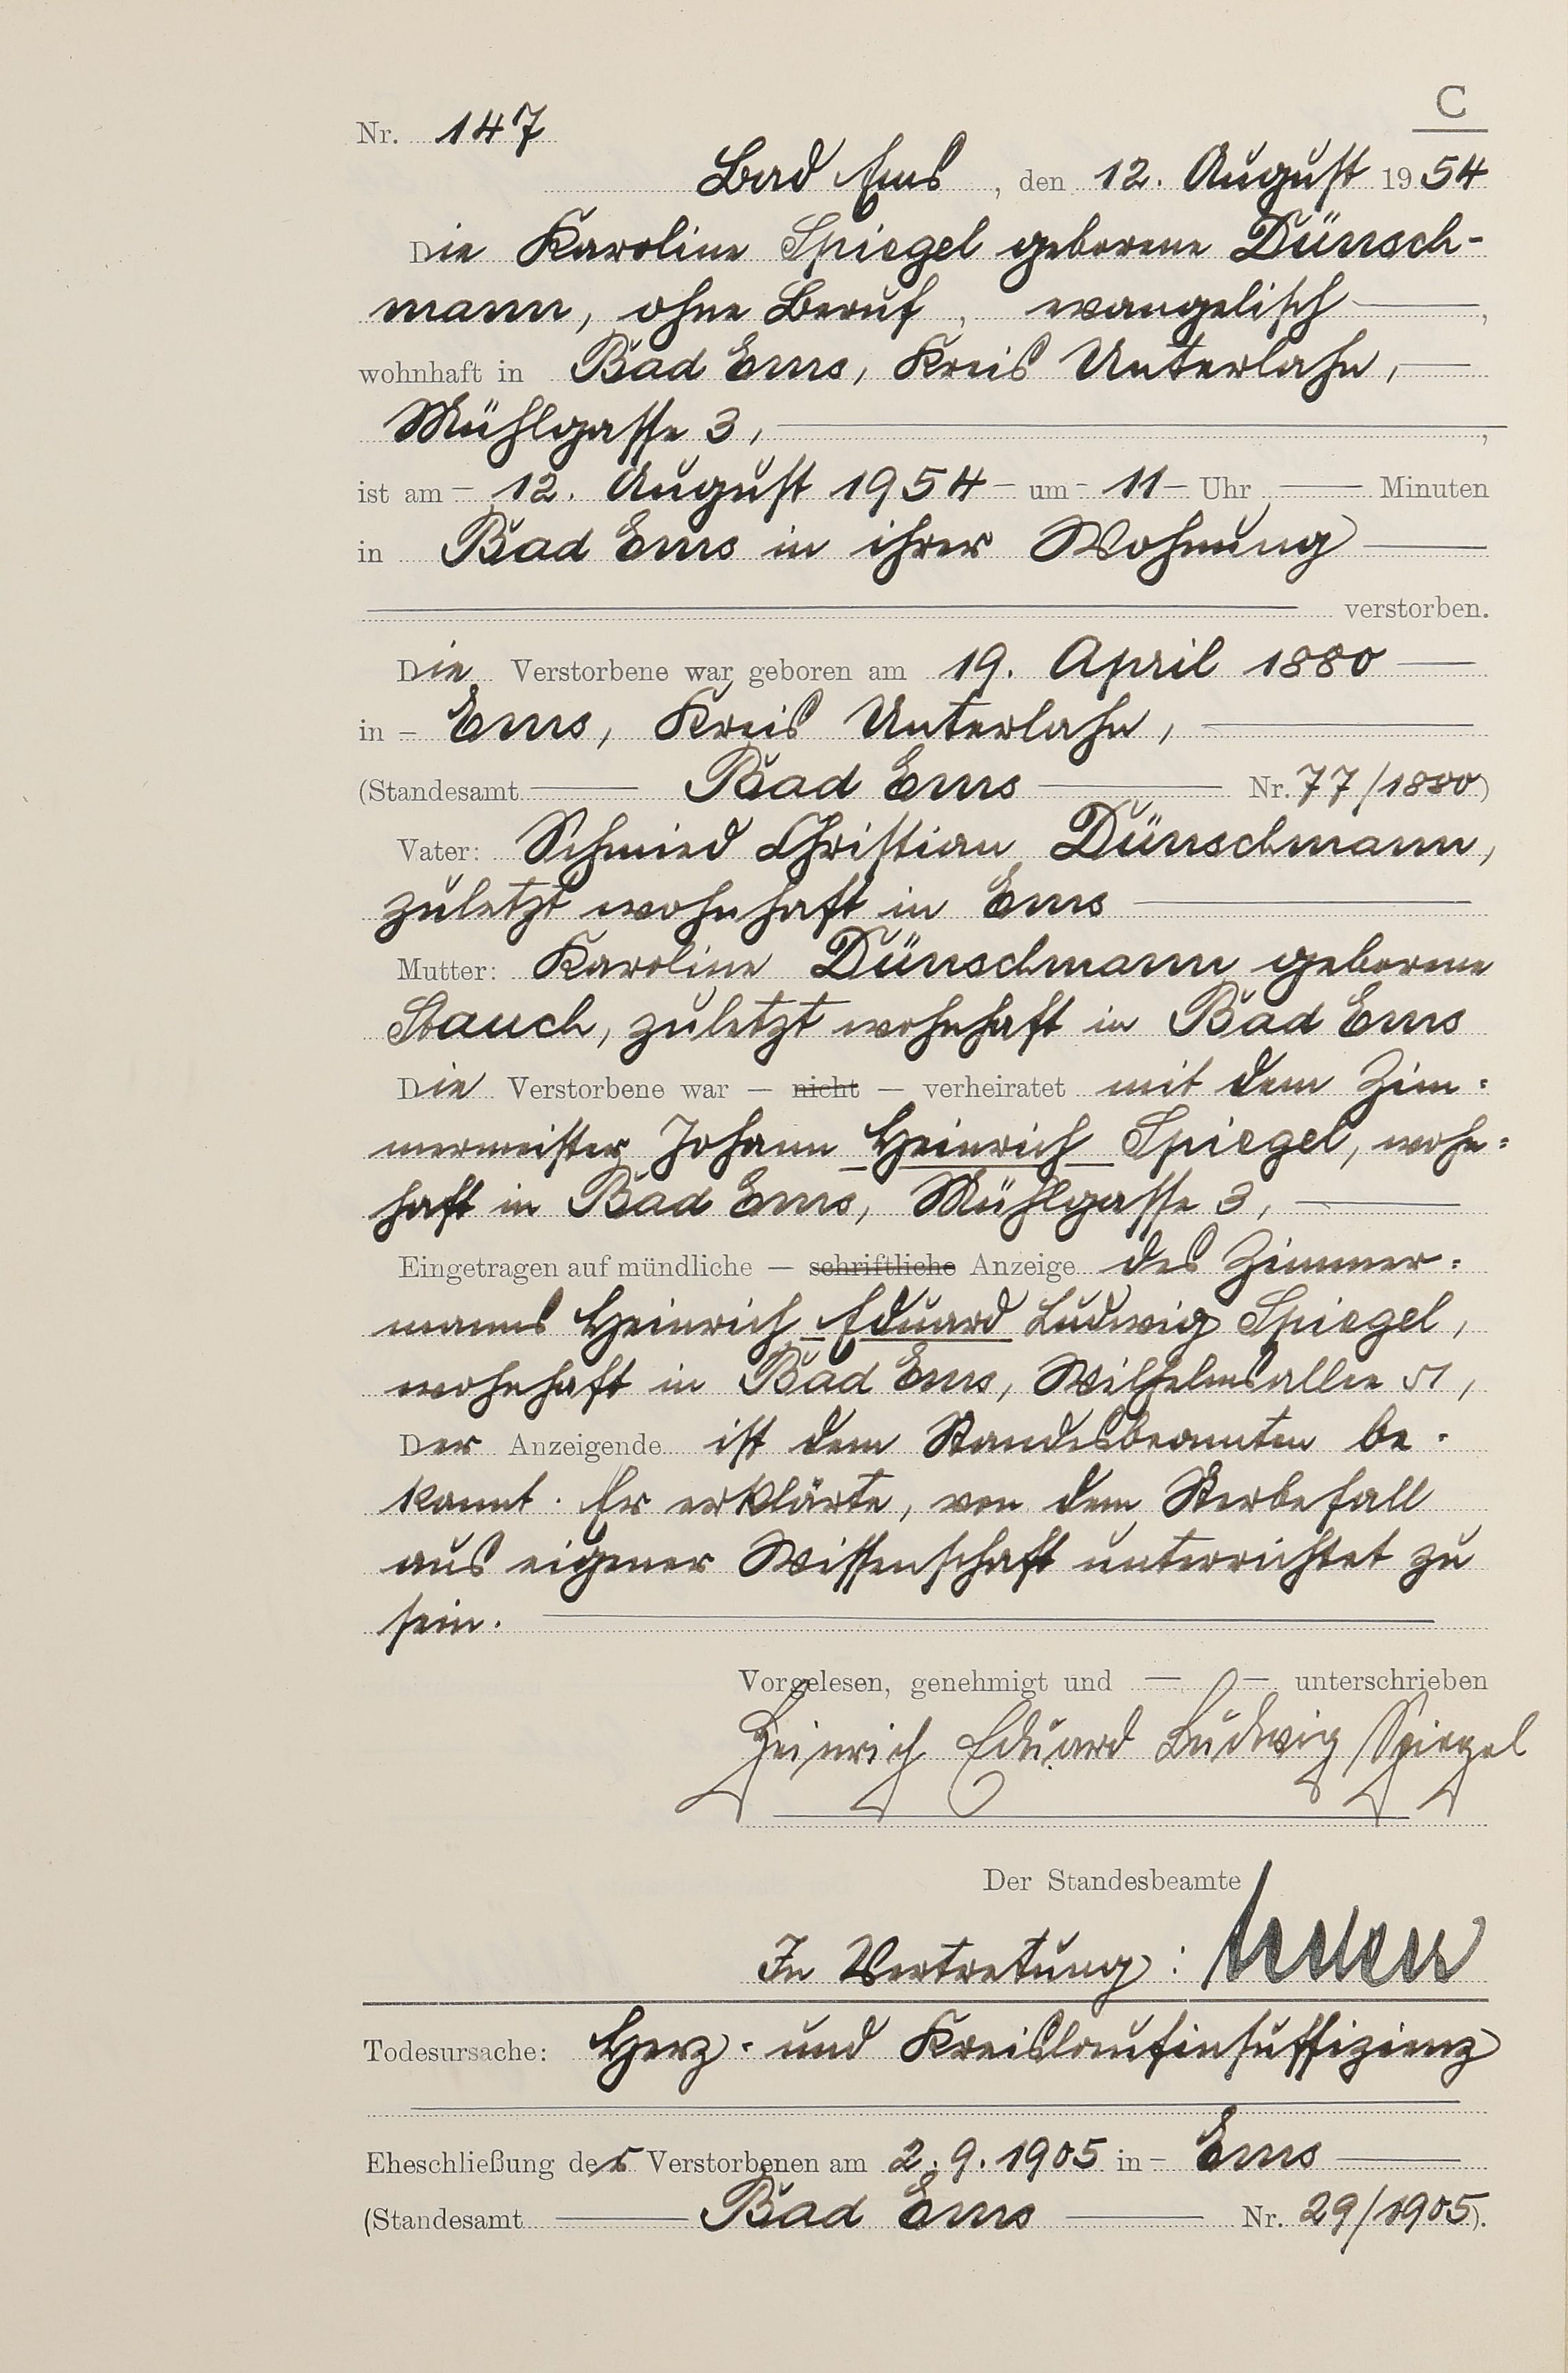 C
Nr. 147
Bad Ems, den 12. August 1954
Die Karoline Spiegel geborene Dünsch-
mann, ohne Beruf, evangelisch ——,
wohnhaft in Bad Ems, Kreis Unterlahn, —
Mühlgasse 3, ——,
ist am – 12. August 1954 – um – 11 – Uhr —— Minuten
in Bad Ems in ihrer Wohnung ——
—— verstorben.
Die Verstorbene war geboren am 19. April 1880 ——
in – Ems, Kreis Unterlahn, ——
(Standesamt —— Bad Ems —— Nr. 77/1880)
Vater: Schmied Christian Dünschmann,
zuletzt wohnhaft in Ems ——
Mutter: Karoline Dünschmann geborene
Stauch, zuletzt wohnhaft in Bad Ems
Die Verstorbene war — nicht — verheiratet mit dem Zim-
mermeister Johann Heinrich Spiegel, wohn-
haft in Bad Ems, Mühlgasse 3, ——
Eingetragen auf mündliche — schriftliche Anzeige des Zimmer-
manns Heinrich Eduard Ludwig Spiegel,
wohnhaft in Bad Ems, Wilhelmsallee 51,
Der Anzeigende ist dem Standesbeamten be-
kannt. Er erklärte, von dem Sterbefall
aus eigener Wissenschaft unterrichtet zu
sein. ——
Vorgelesen, genehmigt und — — unterschrieben
Heinrich Eduard Ludwig Spiegel
Der Standesbeamte
In Vertretung:
Todesursache: Herz- und Kreislaufinsuffizienz
Eheschließung der Verstorbenen am 2.9.1905 in – Ems ——
(Standesamt —— Bad Ems —— Nr. 29/1905).